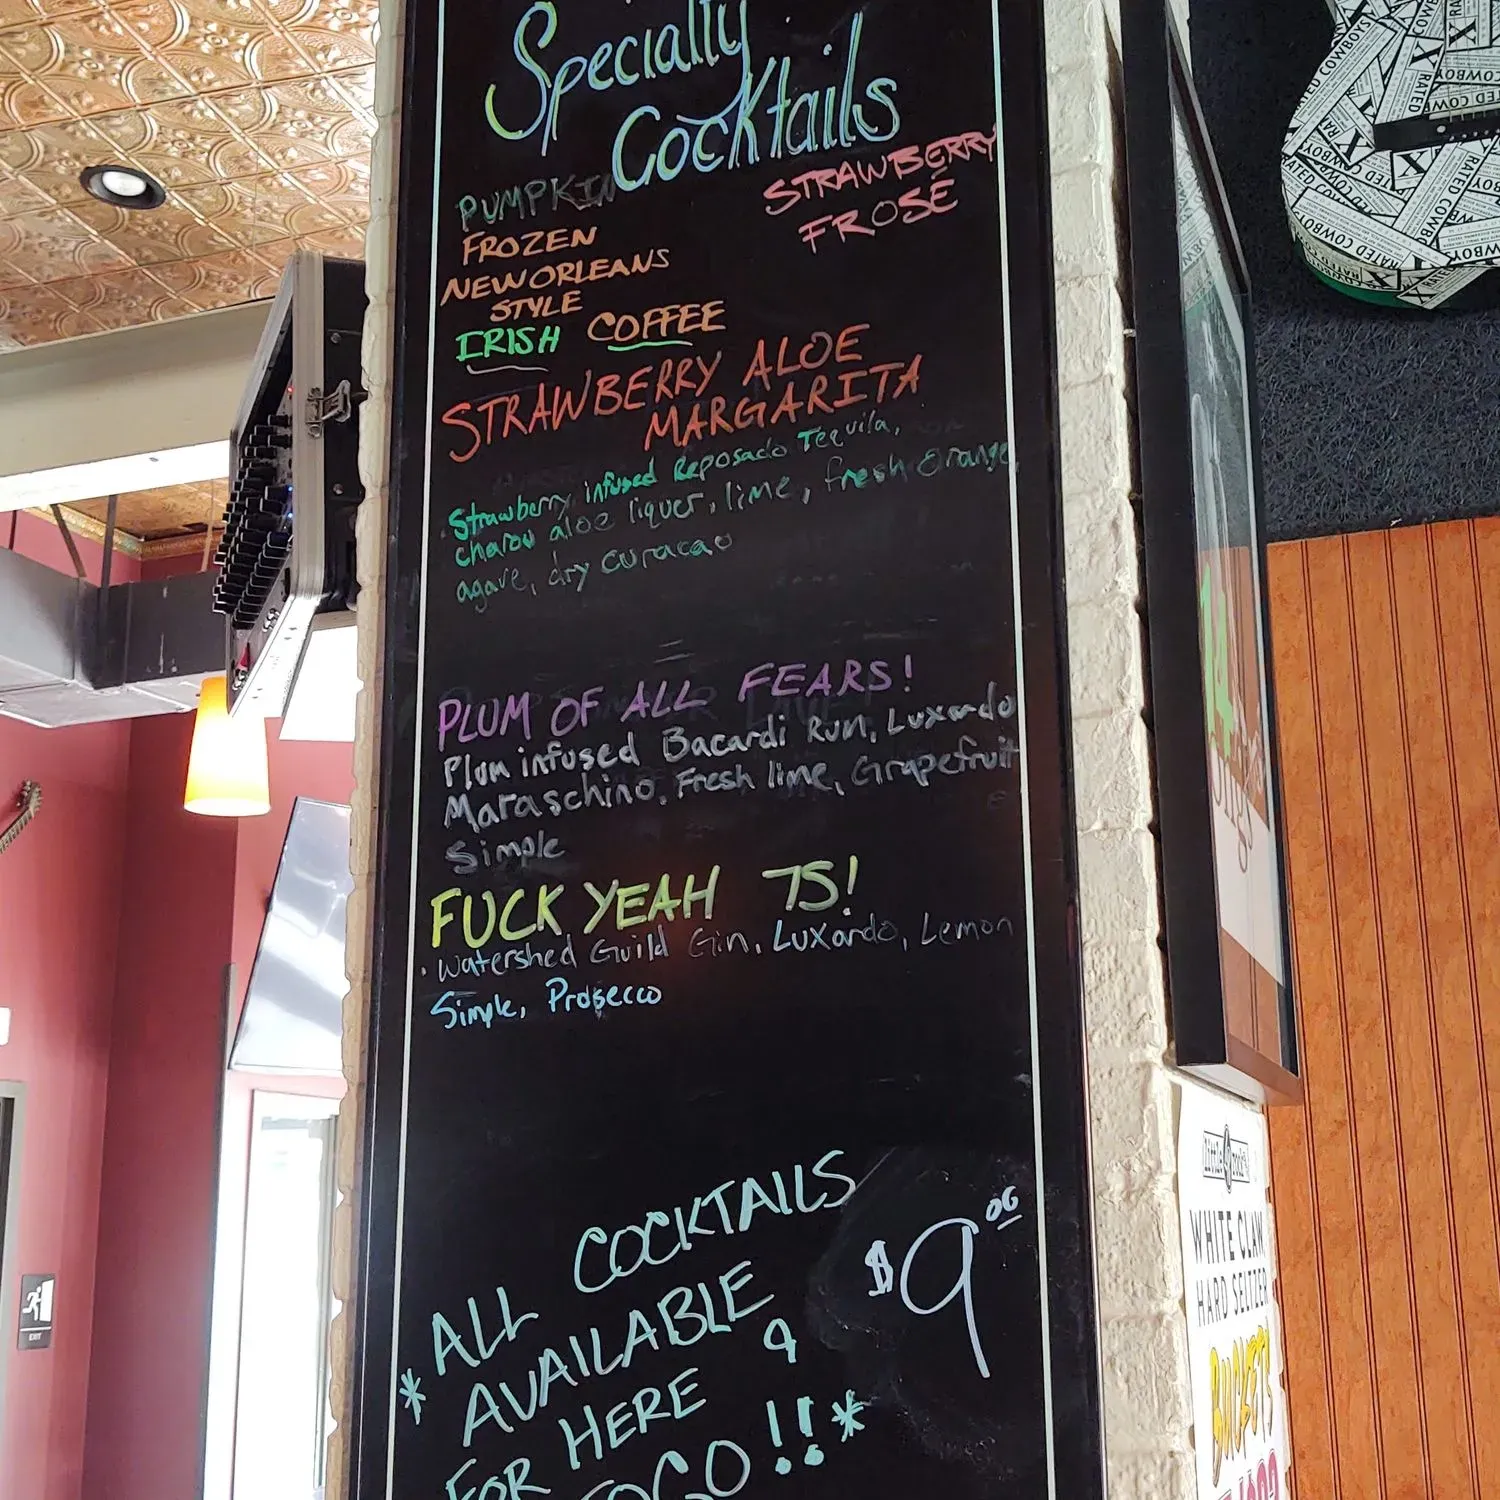 Specialty
Cocktails
PUMPKIN
FROZEN
NEW ORLEANS
STYLE
IRISH COFFEE
STRAWBERRY
FROSÉ
STRAWBERRY ALOE
MARGARITA
Strawberry infused Reposado Tequila,
charou aloe liquer, lime, fresh orange,
agave, dry curacao
PLUM OF ALL FEARS!
Plum infused Bacardi Rum, Luxardo
Maraschino, Fresh lime, Grapefruit
Simple
FUCK YEAH 75!
. Watershed Guild Gin, Luxardo, Lemon
Simple, Prosecco
* ALL COCKTAILS
AVAILABLE
FOR HERE &
TOGO!! *
$9.00
EXIT
RATED X COWBOY
WHITE CLAW
HARD SELTZER
BUCKETS